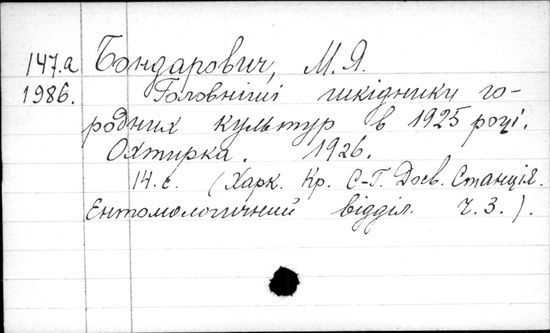 147.а Бондарович, М. Я.
1986. Головніші шкідники го-
родних культур в 1925 році.
Охтирка. 1926.
14. с. (Харк. Кр. С-Г. Досв. Станція.
Ентомологичний відділ. Ч. 3.).